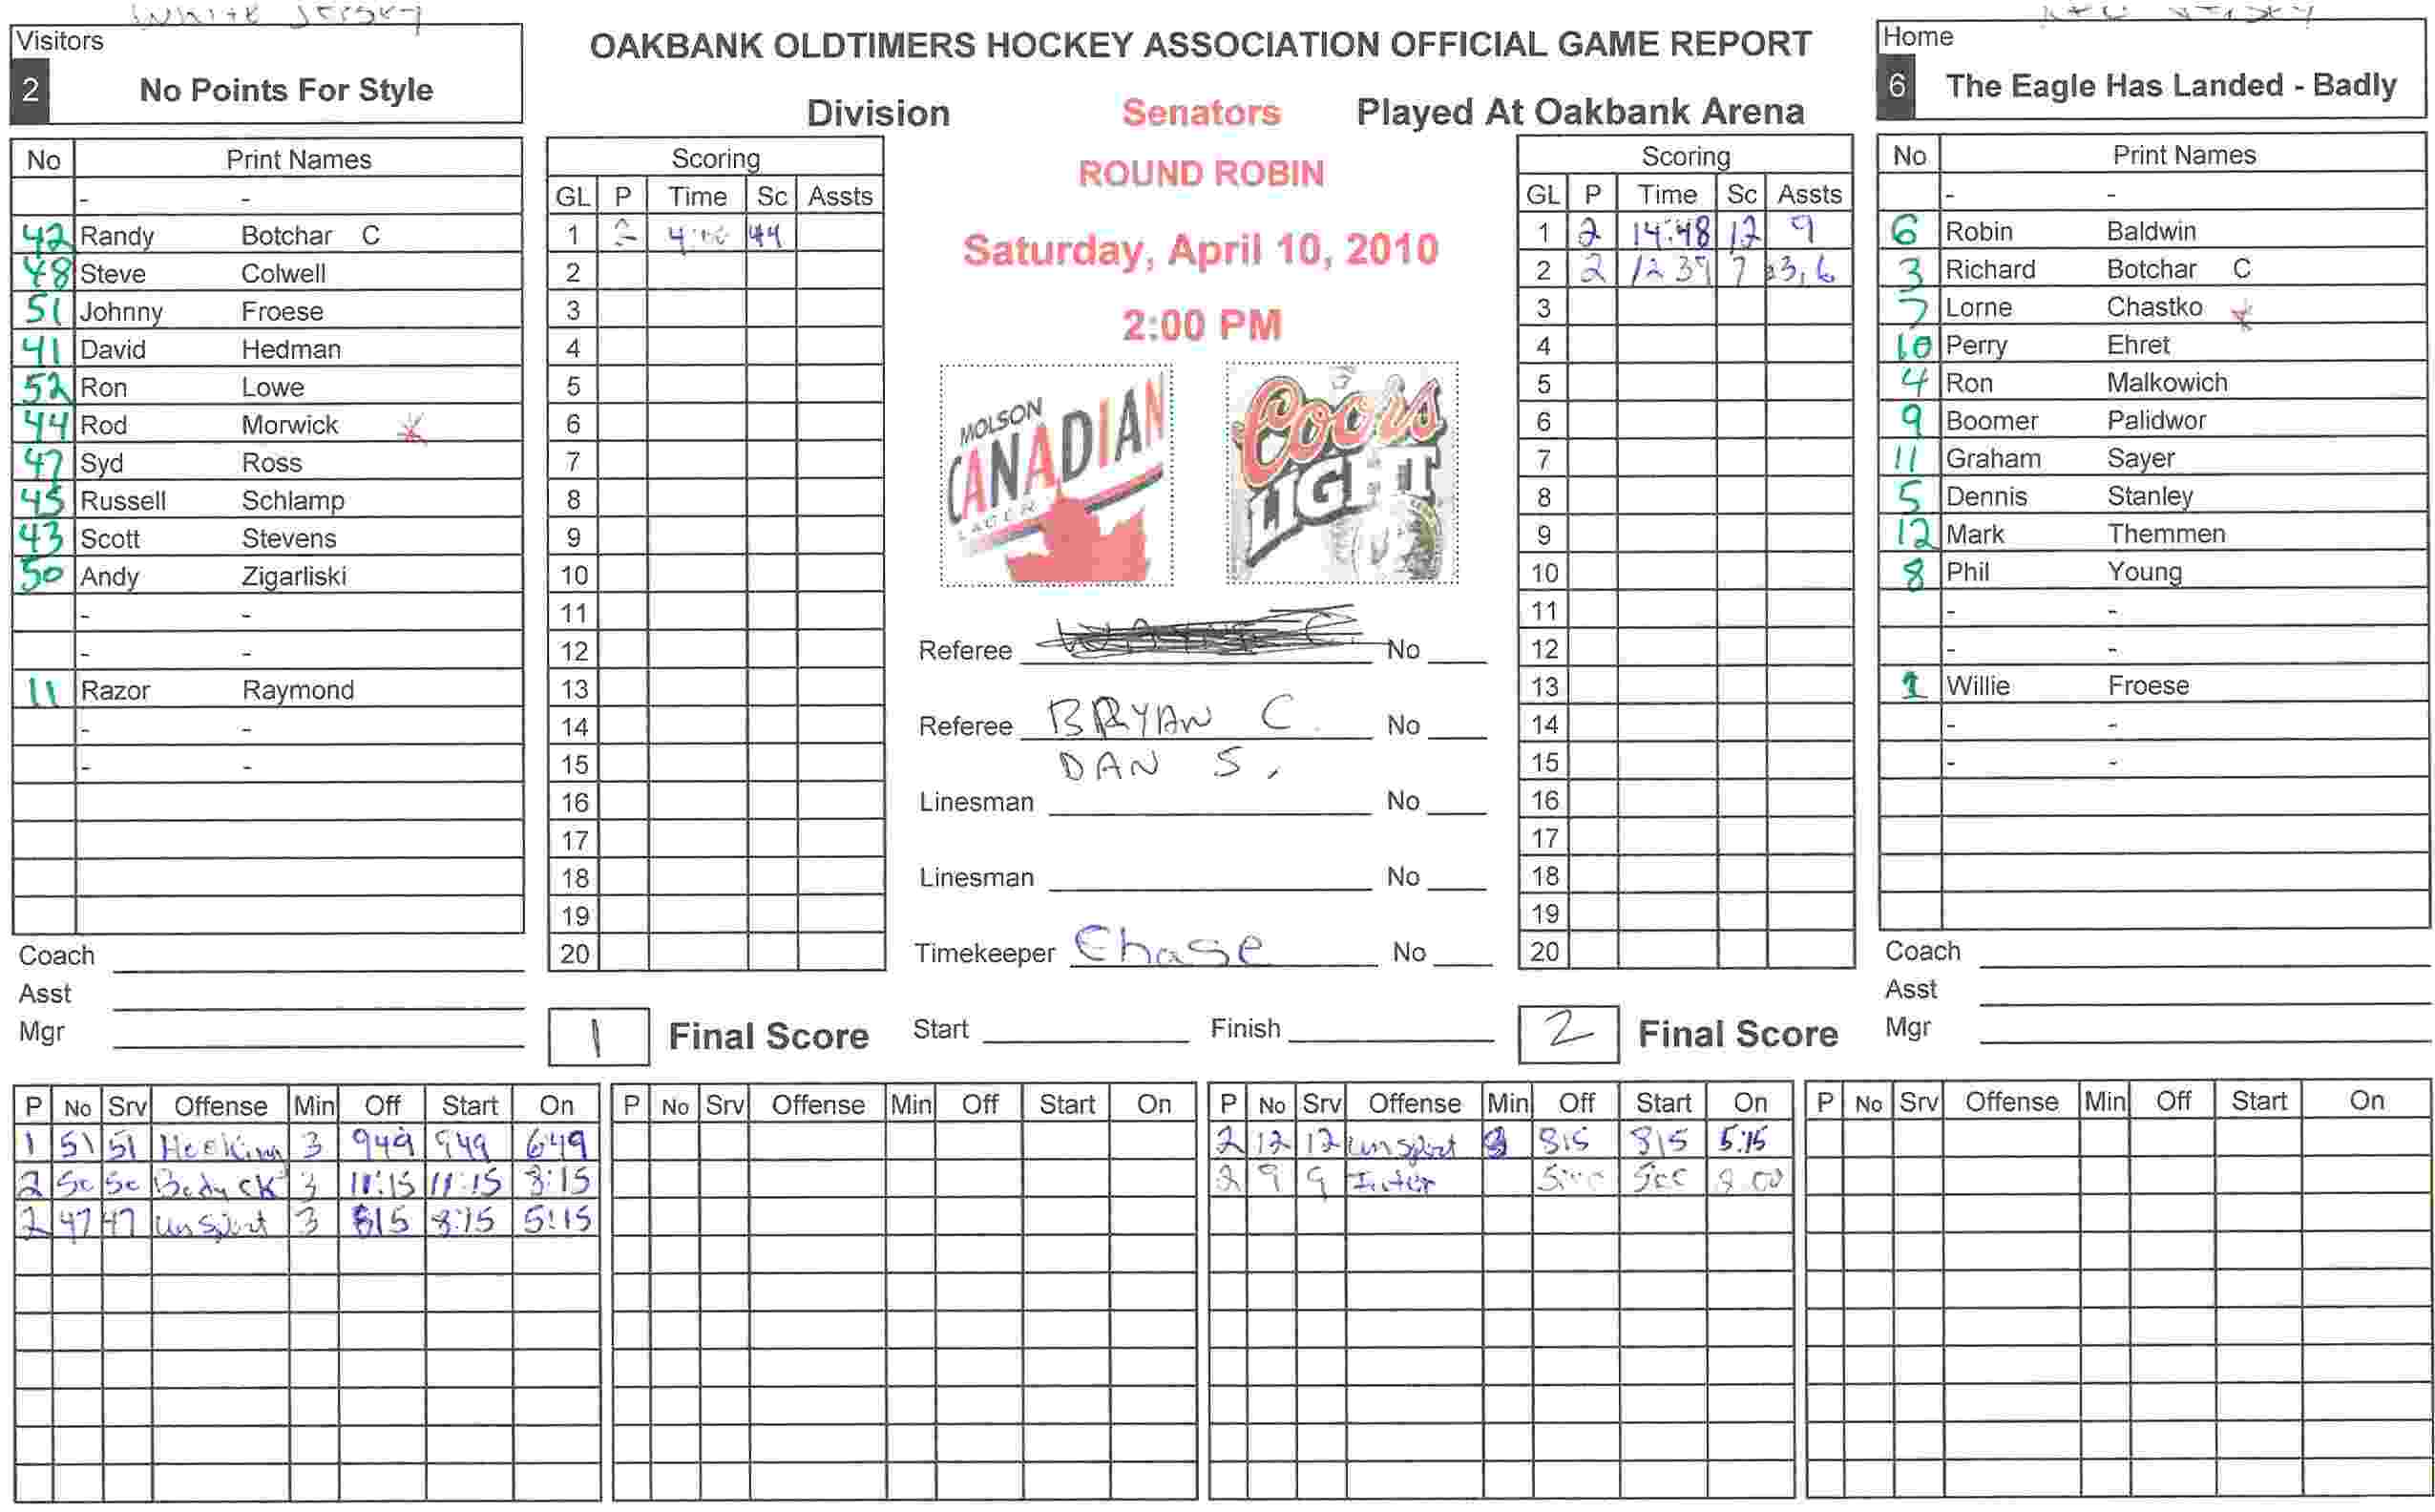 White Jersey
Red Jersey
Visitors
2 No Points For Style
OAKBANK OLDTIMERS HOCKEY ASSOCIATION OFFICIAL GAME REPORT
Home
6 The Eagle Has Landed - Badly
Division Senators Played At Oakbank Arena
ROUND ROBIN
Saturday, April 10, 2010
2:00 PM
No Print Names
- -
42 Randy Botchar C
48 Steve Colwell
51 Johnny Froese
41 David Hedman
52 Ron Lowe
44 Rod Morwick
47 Syd Ross
45 Russell Schlamp
43 Scott Stevens
50 Andy Zigarliski
- -
- -
11 Razor Raymond
- -
- -
Coach
Asst
Mgr
Scoring
GL P Time Sc Assts
1 2 4:00 44
2
3
4
5
6
7
8
9
10
11
12
13
14
15
16
17
18
19
20
1 Final Score
MOLSON
CANADIAN
LAGER
Coors
LIGHT
Referee No
Referee BRYAN C. No
DAN S.
Linesman No
Linesman No
Timekeeper Chase No
Start Finish
Scoring
GL P Time Sc Assts
1 2 14:48 12 9
2 2 12 39 7 3,6
3
4
5
6
7
8
9
10
11
12
13
14
15
16
17
18
19
20
2 Final Score
No Print Names
- -
6 Robin Baldwin
3 Richard Botchar C
7 Lorne Chastko
10 Perry Ehret
4 Ron Malkowich
9 Boomer Palidwor
11 Graham Sayer
5 Dennis Stanley
12 Mark Themmen
8 Phil Young
- -
- -
1 Willie Froese
- -
- -
Coach
Asst
Mgr
P No Srv Offense Min Off Start On
1 51 51 Hooking 3 949 949 649
2 50 50 Body ck 3 11:15 11:15 8:15
2 47 47 UnSport 3 815 8:15 5:15
P No Srv Offense Min Off Start On
P No Srv Offense Min Off Start On
2 12 12 UnSport 3 815 815 5:15
2 9 9 Inter 5:00 500 2:00
P No Srv Offense Min Off Start On